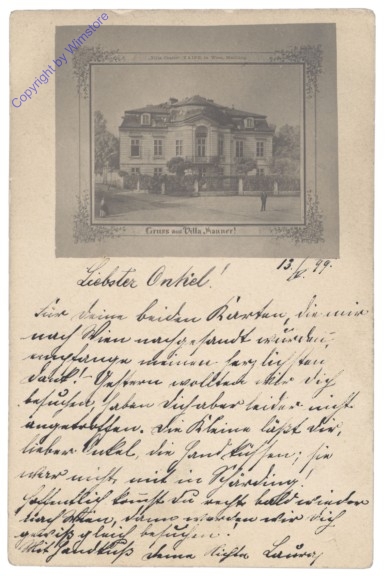 Copyright by Wimstore
Gruss aus Villa Hauser!
13./X. 99.
Liebster Onkel!
Für deine beiden Karten, die mir
nach Wien nachgesandt wurden,
empfange meinen herzlichsten
Dank! Gestern wollten wir dich
besuchen, haben dich aber leider nicht
angetroffen. Die Kleine läßt dir,
lieber Onkel, die Hand küssen; sie
war nicht mit in Schärding!
Hoffentlich kommst du recht bald wieder
nach Wien, dann werden wir dich
gewiß gleich besuchen!
Mit Handkuß deine Nichte Laura